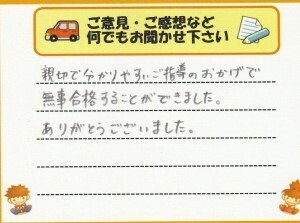 ご意見・ご感想など
何でもお聞かせ下さい
親切で分かりやすいご指導のおかげで
無事合格することができました。
ありがとうございました。